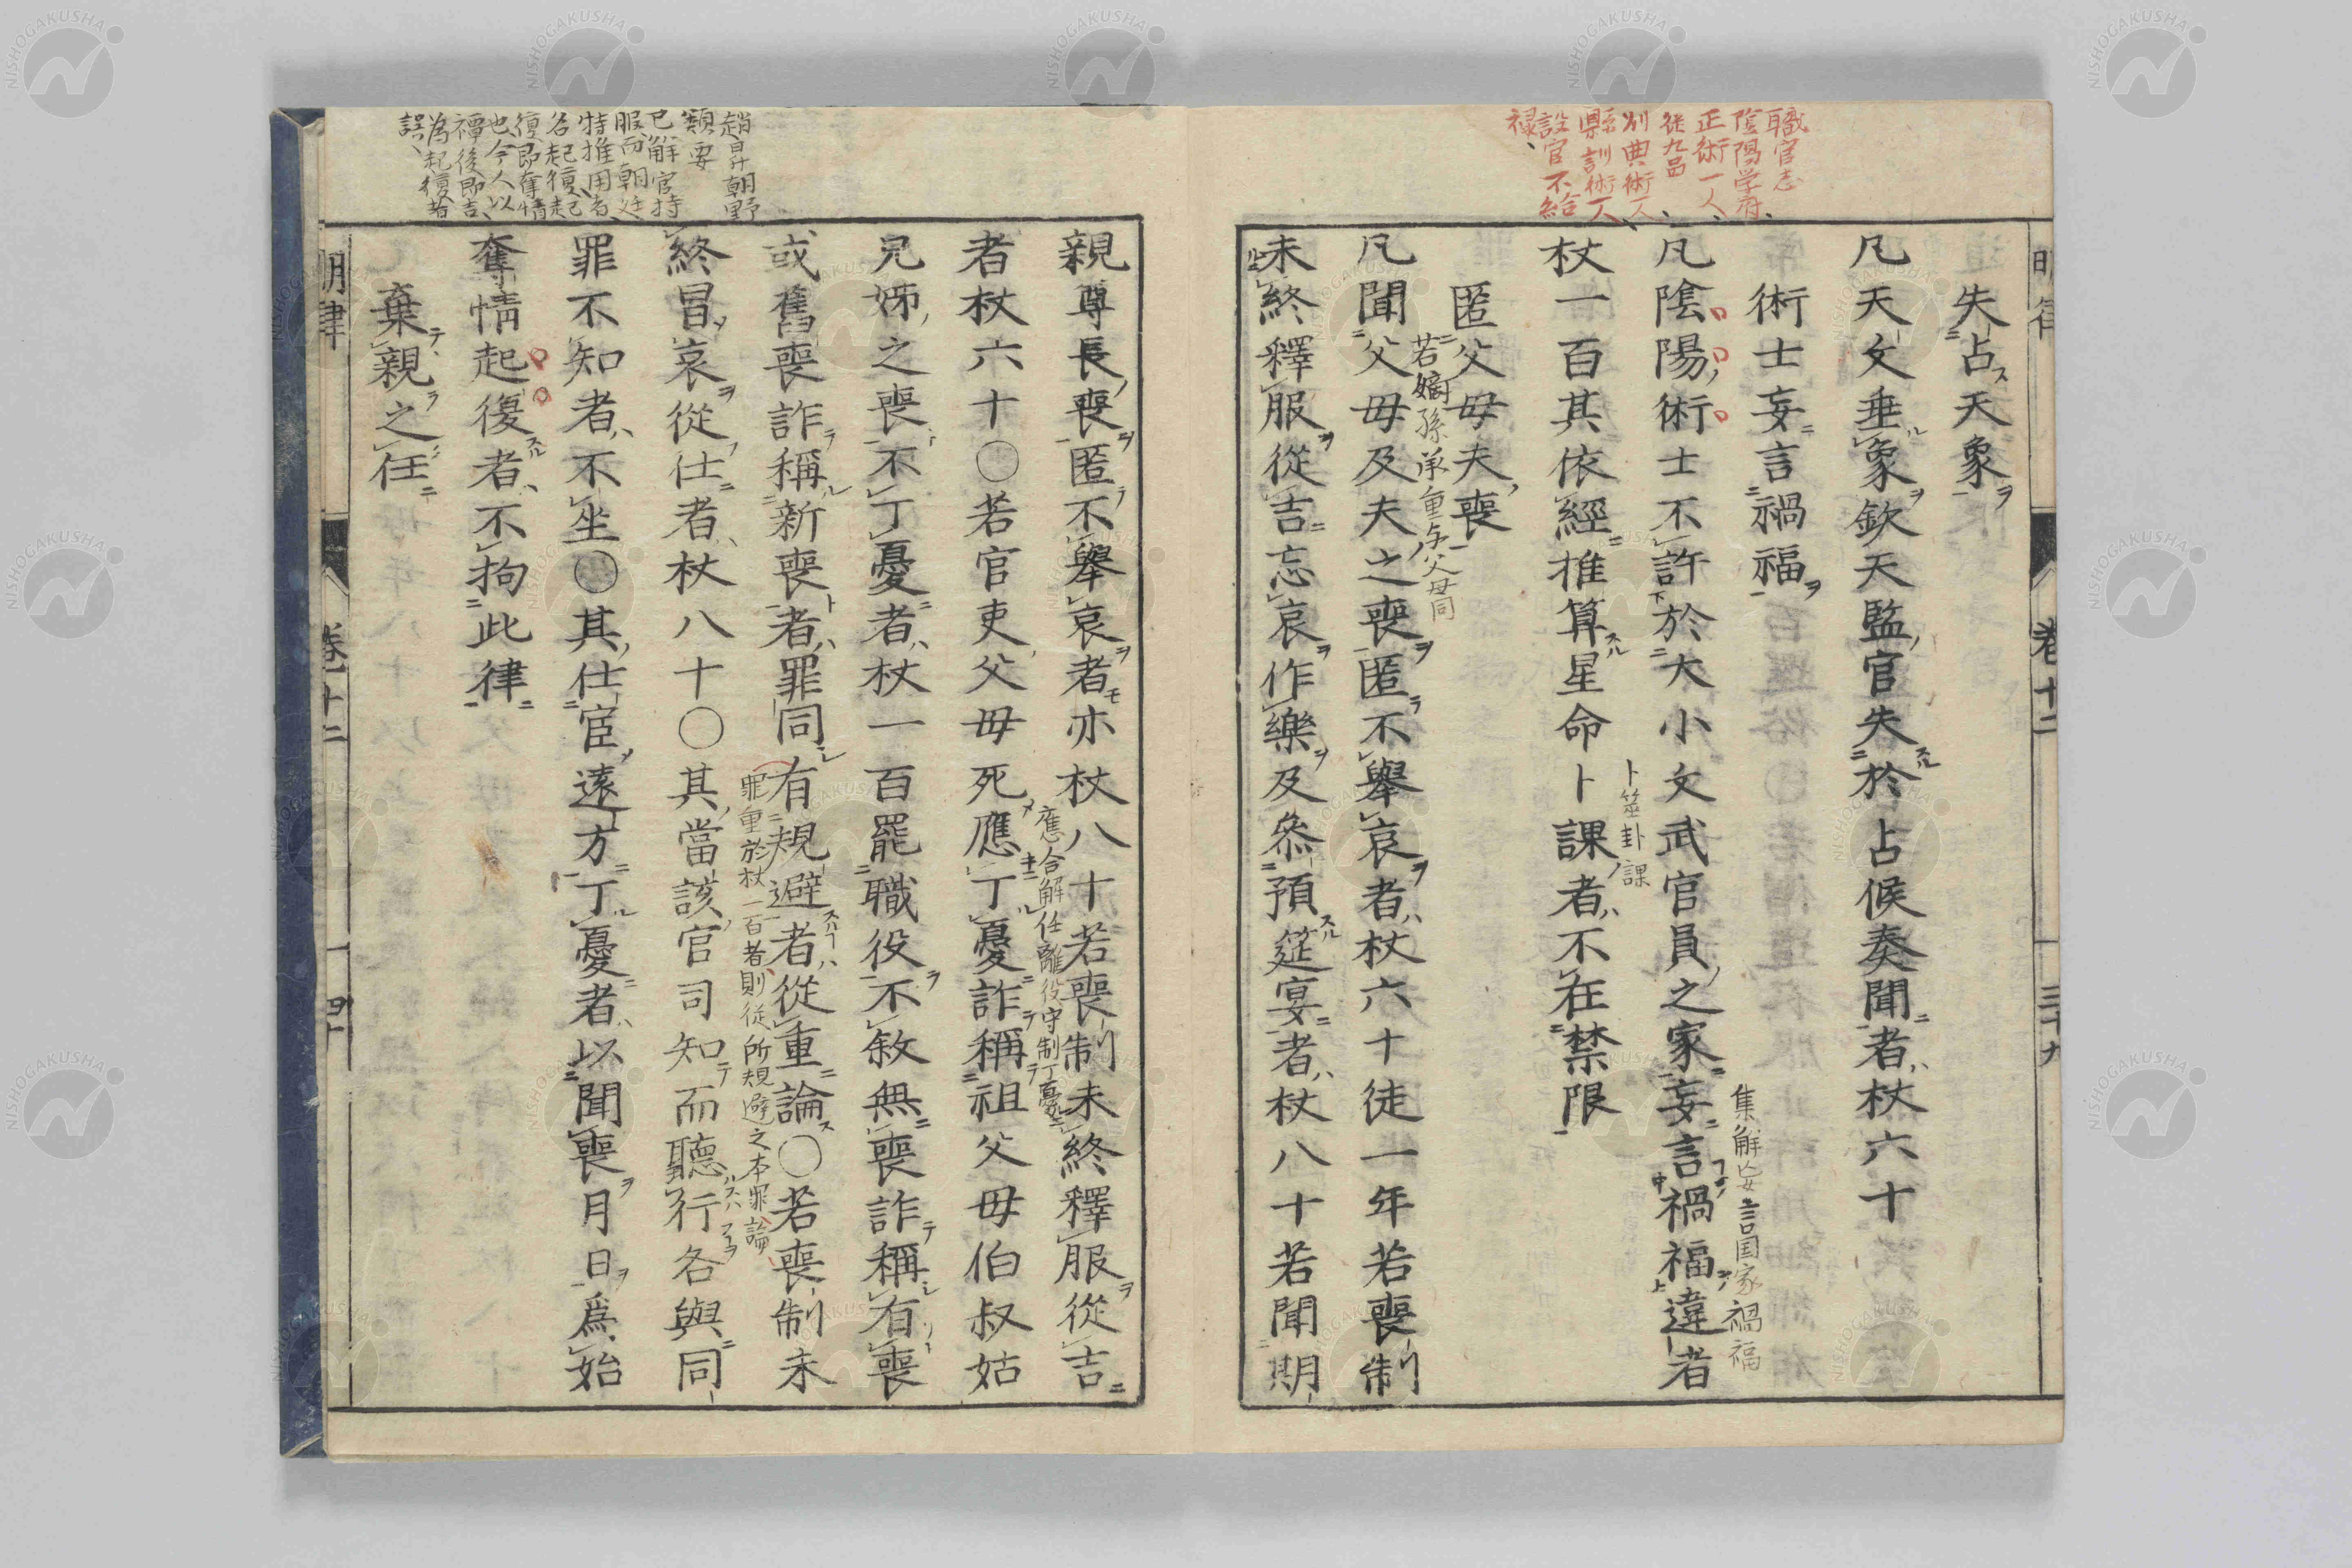 職官志
陰陽学府、
正術一人、
従九品、
州典術一人、
縣訓術一人、
設官不給
禄、
明律
卷十二
三十九
失占天象
凡天文垂象欽天監官失於占候奏聞者杖六十
術士妄言禍福
集解妄言国家禍福
凡陰陽術士不許於大小文武官員之家妄言禍福違者
卜筮卦課
杖一百其依經推算星命卜課者不在禁限
匿父母夫喪
若嫡孫承重与父母同
凡聞父母及夫之喪匿不舉哀者杖六十徒一年若喪制
未終釋服從吉忘哀作樂及叅預筵宴者杖八十若聞期
親尊長喪匿不舉哀者亦杖八十若喪制未終釋服從吉
應合解任離役守制丁憂
者杖六十○若官吏父母死應丁憂詐稱祖父母伯叔姑
兄姊之喪不丁憂者杖一百罷職役不敘無喪詐稱有喪
或舊喪詐稱新喪者罪同有規避者從重論○若喪制未
罪重於杖一百者則從所規避之本罪論
終冒哀從仕者杖八十○其當該官司知而聽行各與同
罪不知者不坐○其仕宦遠方丁憂者以聞喪月日爲始
奪情起復者不拘此律
棄親之任
明律
卷十二
四十
趙昇朝野
類要
已解官持
服而朝廷
特推用者
名起復起
復即奪情
也今人以
禫後即吉
為起復者
誤、
NISHOGAKUSHA